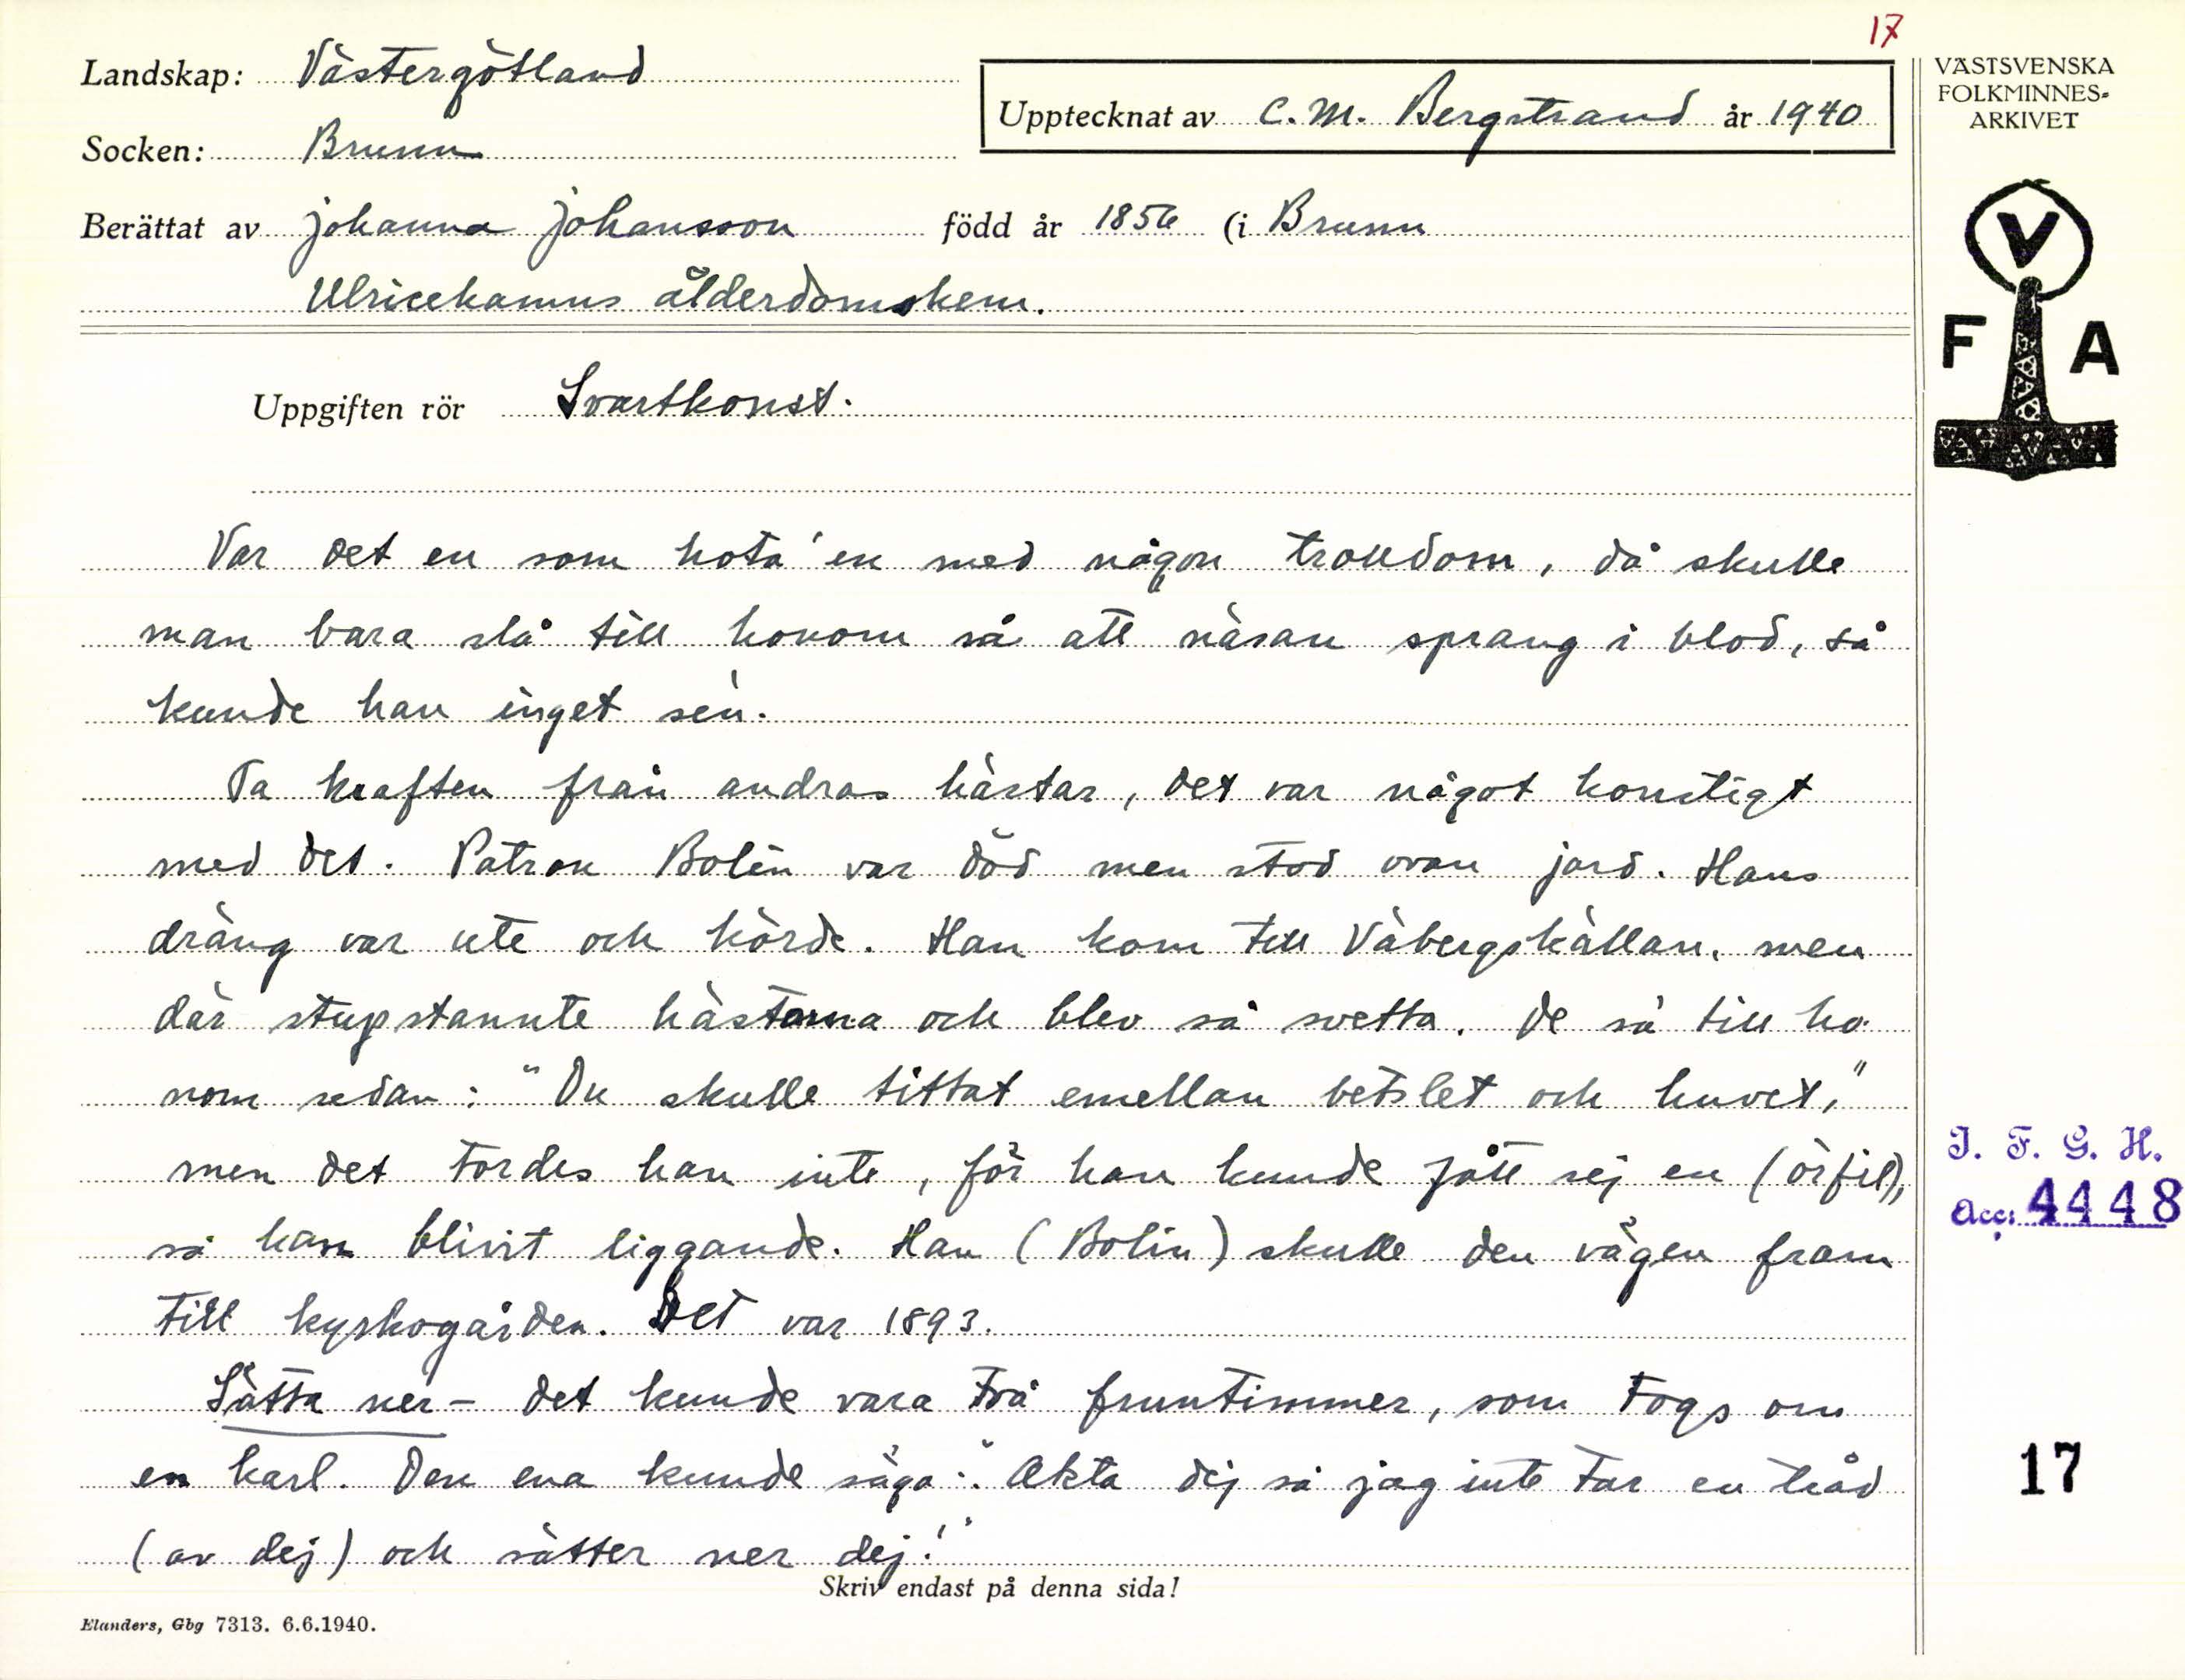 17
Landskap: Västergötland
Upptecknat av C. M. Bergstrand år 1940
VÄSTSVENSKA
FOLKMINNES-
ARKIVET
Socken: Brunn
Berättat av Johanna Johansson född år 1856 (i Brunn
Ulricehamns ålderdomshem.
V
F A
Uppgiften rör Svartkonst.
Var det en som hota' en med någon trolldom, då skulle
man bara slå till honom så att näsan sprang i blod, så
kunde han inget sen.
Ta kraften från andras hästar, det var något konstigt
med det. Patron Bolin var död men stod ovan jord. Hans
dräng var ute och körde. Han kom till Våbergskällan, men
där stupstannte hästarna och blev så svetta. De sa till ho-
nom sedan: "Du skulle tittat emellan betslet och huvet,"
men det tordes han inte, för han kunde fått sej en (örfil),
så han blivit liggande. Han (Bolin) skulle den vägen fram
till kyrkogården. Det var 1893.
Sätta ner - det kunde vara två fruntimmer, som togs om
en karl. Den ena kunde säga: "Akta dej så jag inte tar en tråd
(av dej) och sätter ner dej!"
Skriv endast på denna sida!
I. F. G. H.
Acc: 4448
17
Elanders, Gbg 7313. 6.6.1940.